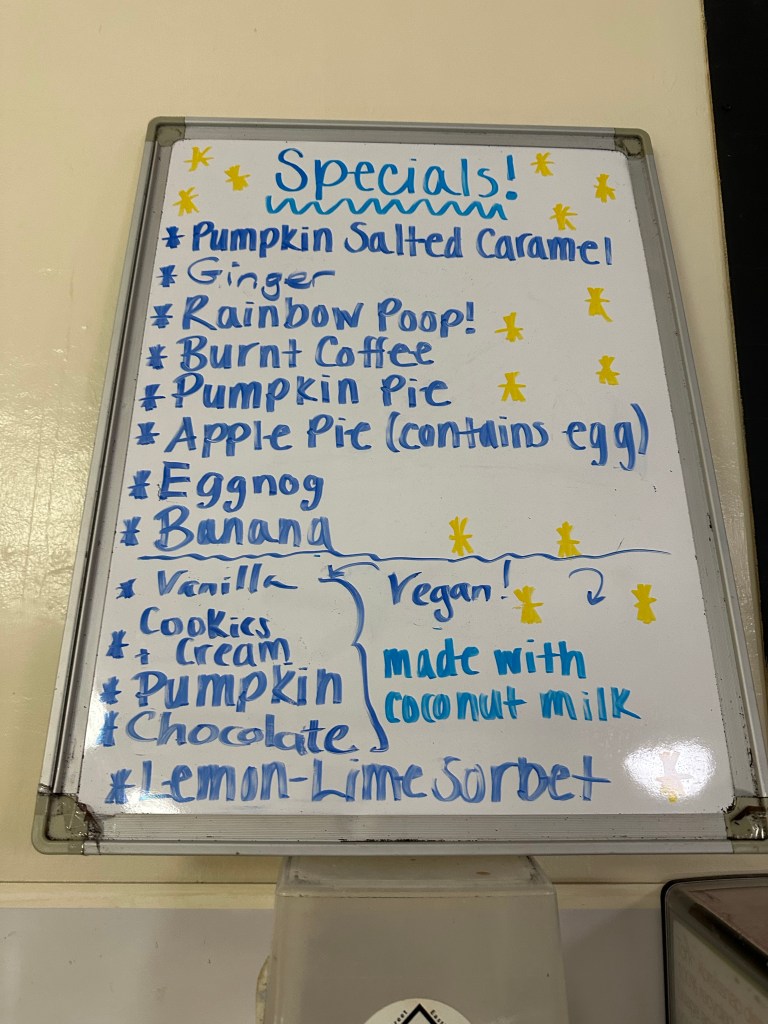 Specials!
* Pumpkin Salted Caramel
* Ginger
* Rainbow Poop!
* Burnt Coffee
* Pumpkin Pie
* Apple Pie (contains egg)
* Eggnog
* Banana
* Vanilla
Vegan!
* Cookies
+ Cream
* Pumpkin
* Chocolate
made with
coconut milk
* Lemon-Lime Sorbet